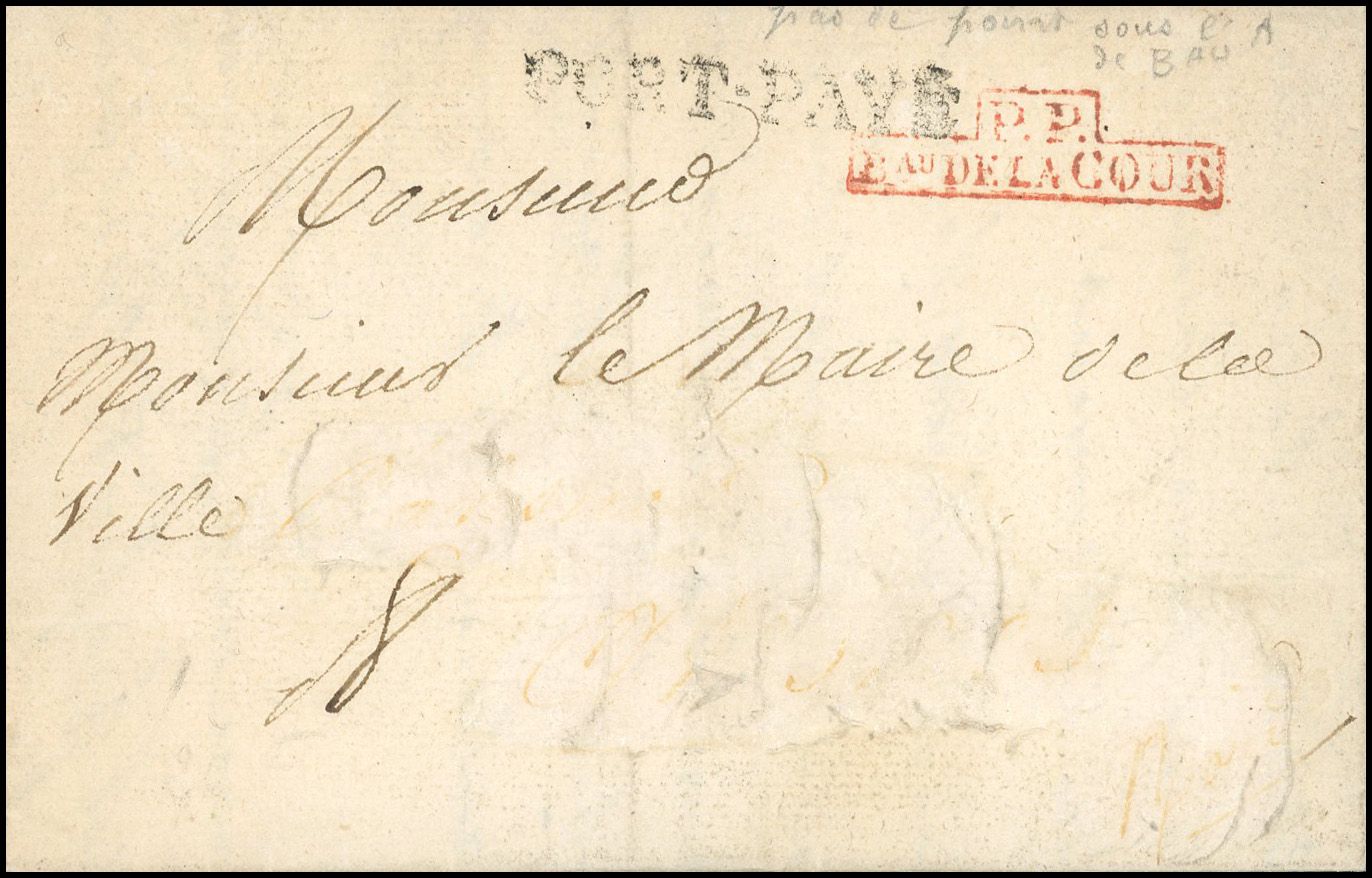 pas de point sous l'A
de BAU
PORT-PAYÉ
P. P.
BAU DE LA COUR
Monsieur
Monsieur le Maire de la
Ville